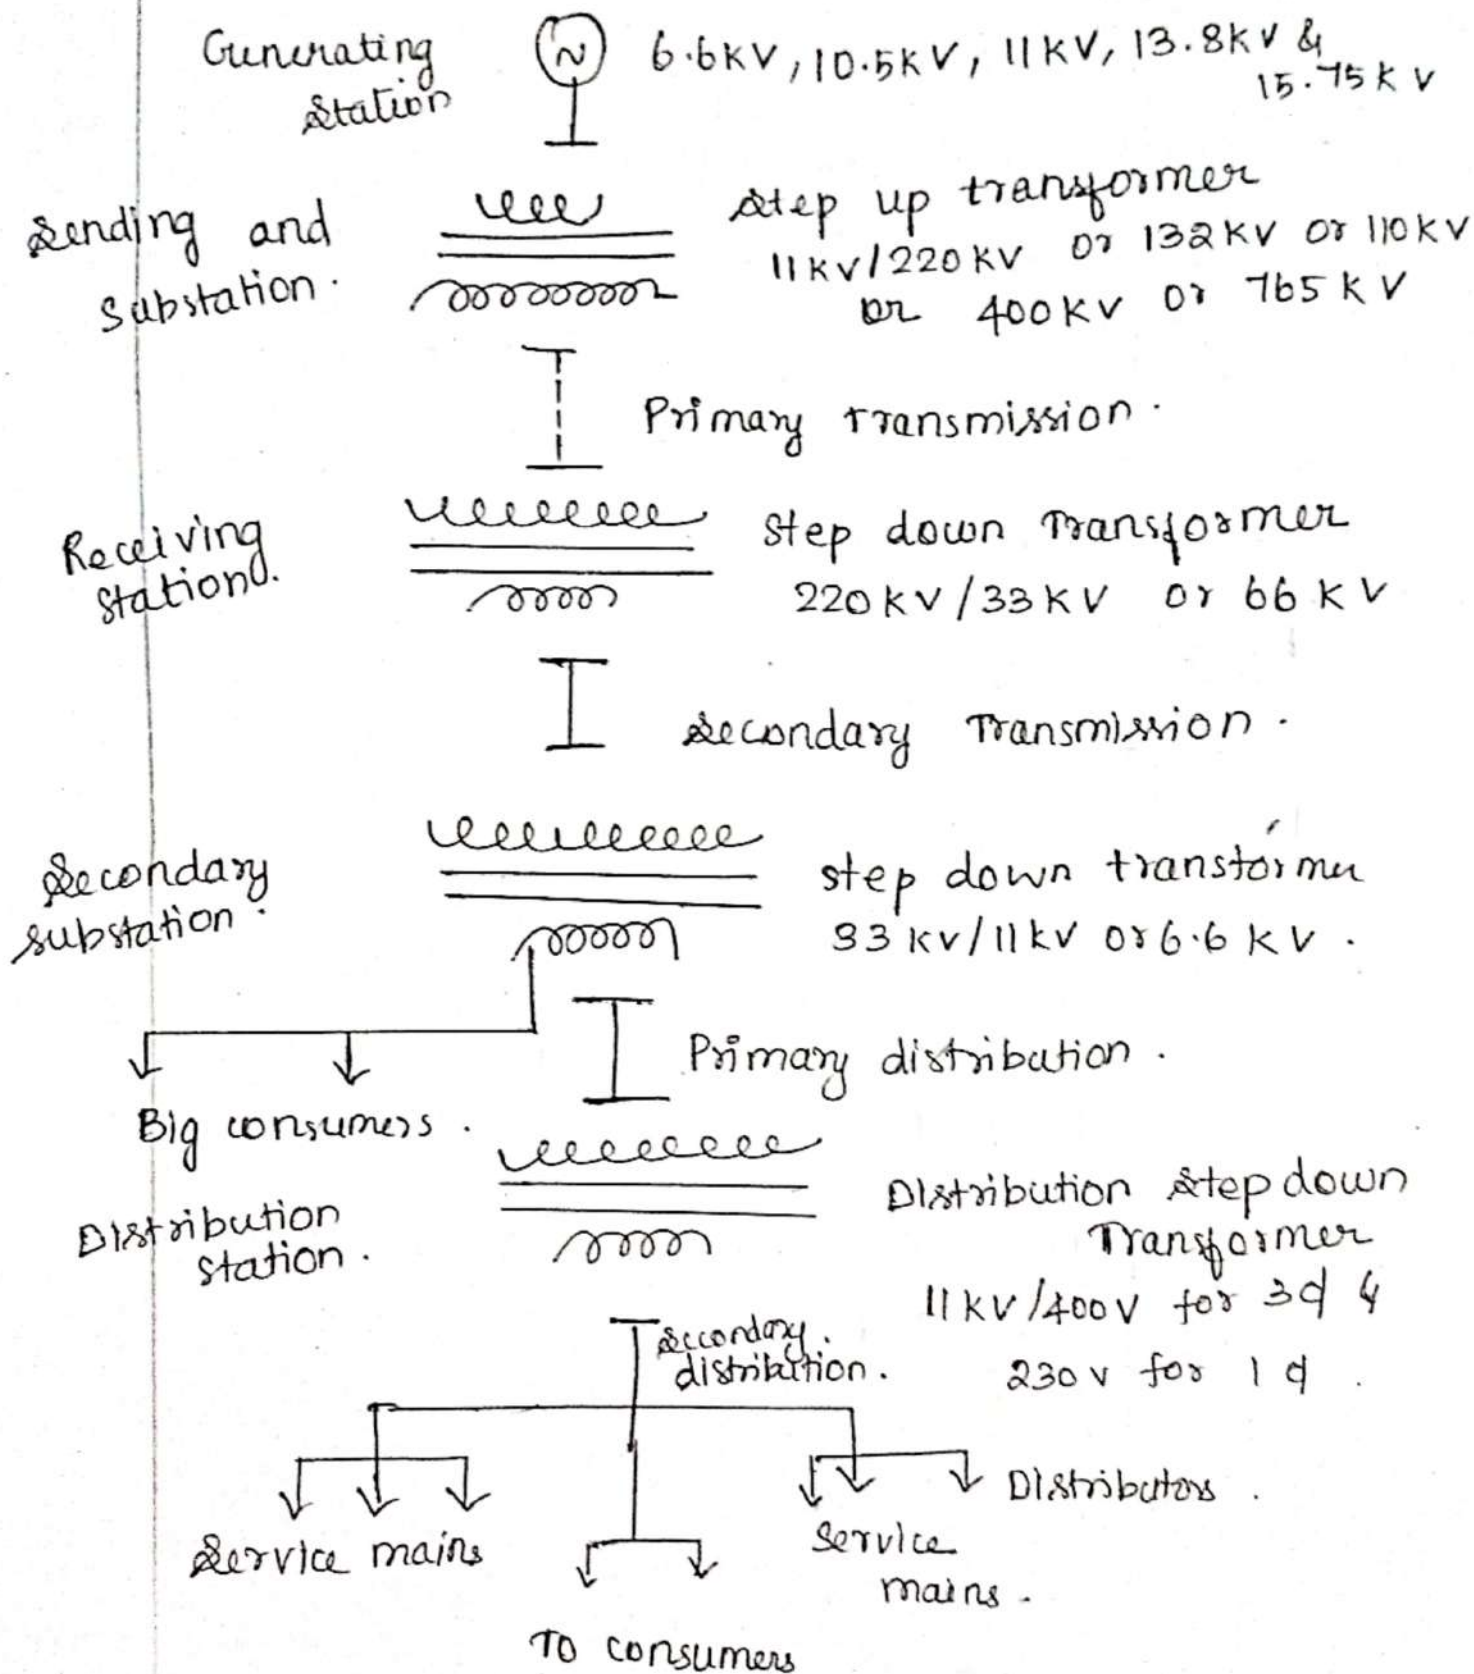 Generating
Station
N
6.6KV, 10.5KV, 11KV, 13.8KV &
15.75KV
Sending and
Substation.
Step up transformer
11KV/220KV or 132KV or 110KV
or 400KV or 765KV
Primary transmission.
Receiving
Station.
Step down Transformer
220KV/33KV or 66KV
Secondary Transmission.
Secondary
substation.
step down transformer
33KV/11KV or 6.6KV.
Primary distribution.
Big consumers.
Distribution
station.
Distribution Step down
Transformer
11KV/400V for 3ϕ &
230V for 1ϕ.
Secondary
distribution.
Distributors.
Service mains
Service
mains.
To consumers